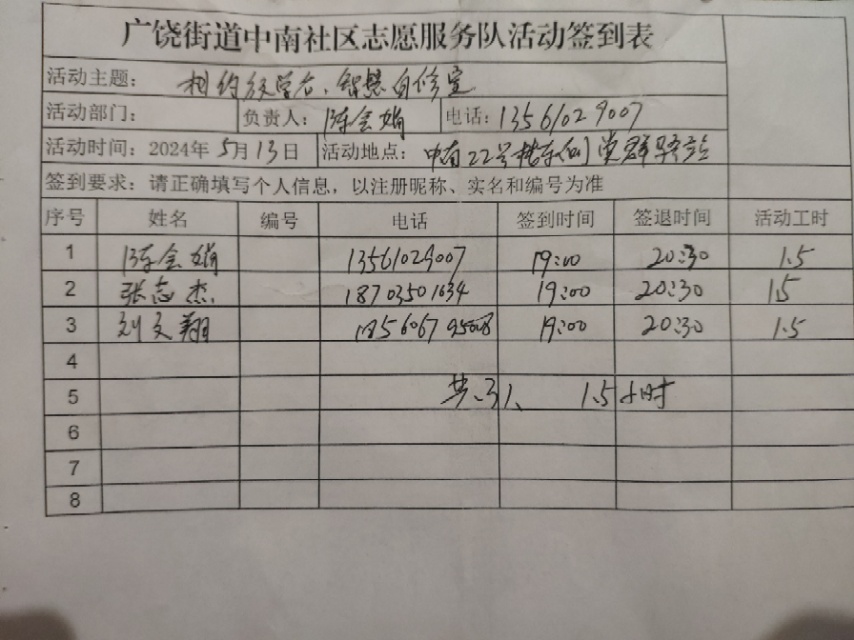 广饶街道中南社区志愿服务队活动签到表
活动主题： 相约 智慧自修室
活动部门： 负责人：陈会娟 电话：13561029007
活动时间：2024年5月13日 活动地点：中南22号楼东侧党群驿站
签到要求：请正确填写个人信息，以注册昵称、实名和编号为准
序号 姓名 编号 电话 签到时间 签退时间 活动工时
1 陈会娟 13561029007 19:00 20:30 1.5
2 张志杰 18703501634 19:00 20:30 1.5
3 刘文翔 19:00 20:30 1.5
4
5 共3人、 1.5小时
6
7
8